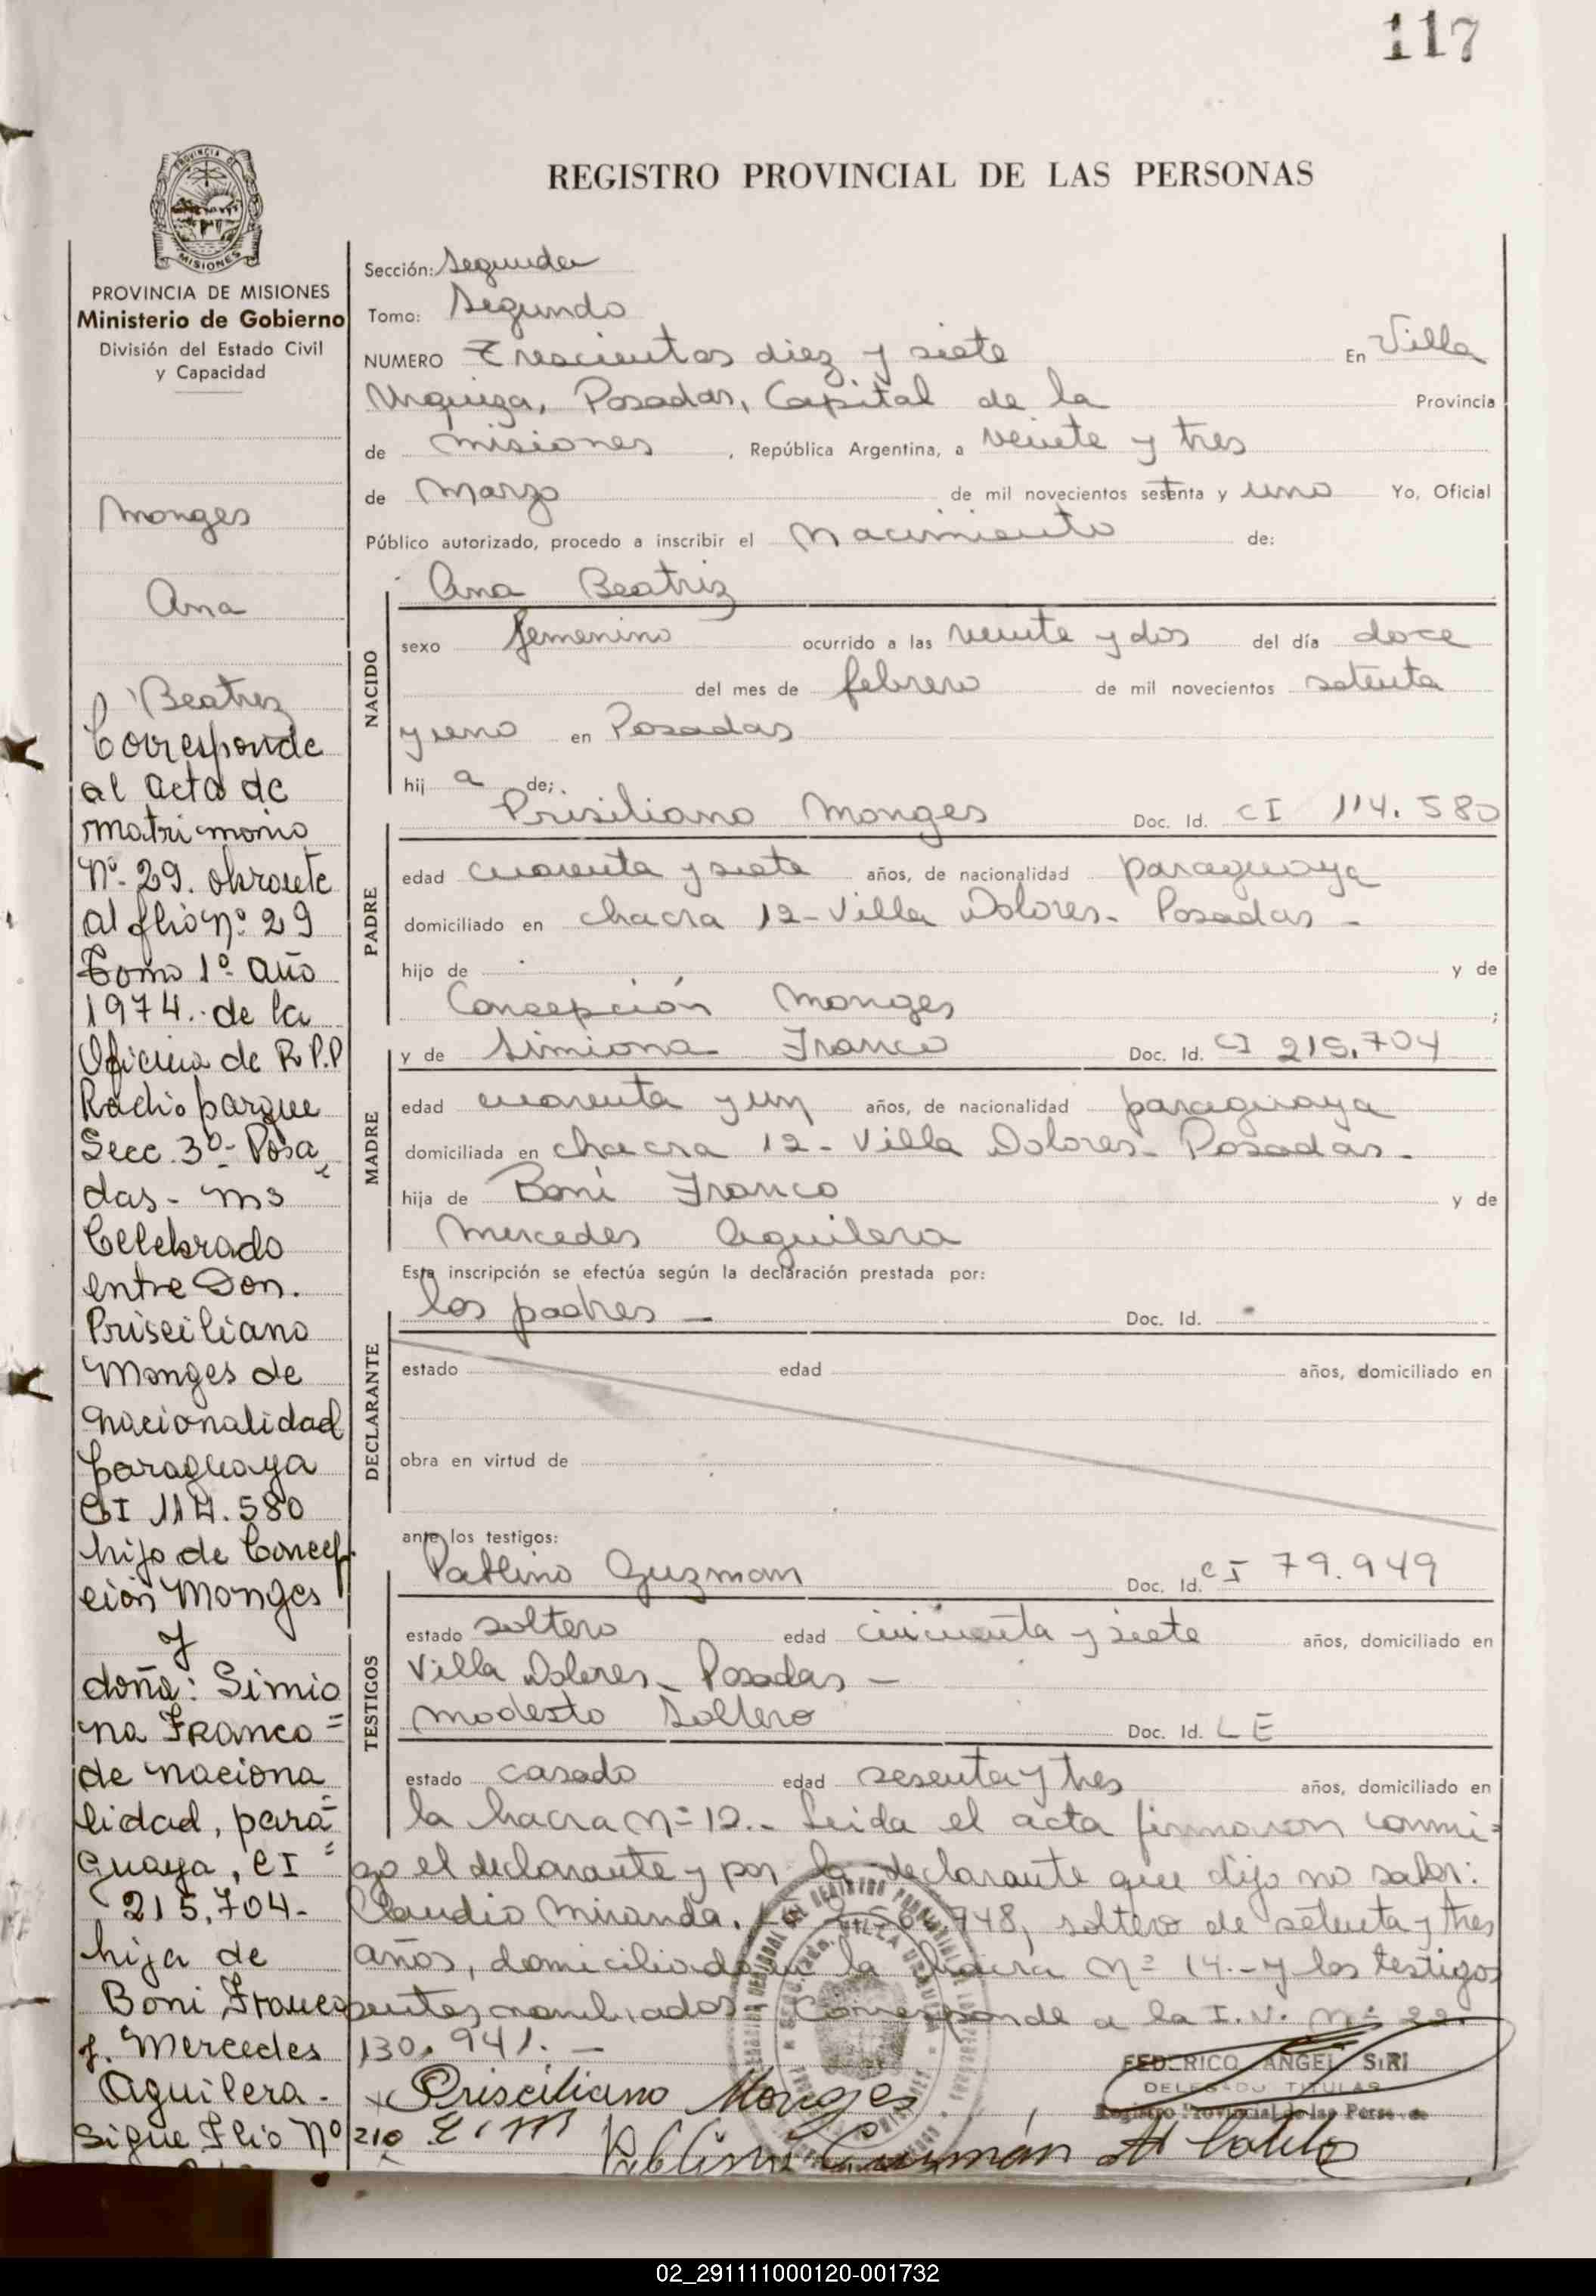 117
REGISTRO PROVINCIAL DE LAS PERSONAS
PROVINCIA DE MISIONES
Ministerio de Gobierno
División del Estado Civil
y Capacidad
Monges
Ana
Beatriz
Corresponde
al acta de
matrimonio
Nº 29. obrante
al flio nº 29
Tomo 1º año
1974. de la
Oficina de R.P.P
Radio parque
Secc. 3º- Posa
das - Ms
Celebrado
entre Don.
Prisciliano
Monges de
nacionalidad
paraguaya
CI 114.580
hijo de Concep
ción Monges
y
doña: Simio
na Franco =
de naciona
lidad, para=
guaya, CI =
215.704-
hija de
Boni Franco
y. Mercedes
Aguilera.
Sigue Flio Nº 210
Sección: Segunda
Tomo: Segundo
NUMERO Trescientos diez y siete En Villa
Urquiza, Posadas, Capital de la Provincia
de Misiones , República Argentina, a veinte y tres
de Marzo de mil novecientos setenta y uno Yo, Oficial
Público autorizado, procedo a inscribir el Nacimiento de:
Ana Beatriz
NACIDO
sexo femenino ocurrido a las veinte y dos del día doce
del mes de febrero de mil novecientos setenta
y uno en Posadas
hij a de;
Prisiliano Monges Doc. Id. CI 114.580
PADRE
edad cuarenta y siete años, de nacionalidad paraguaya
domiciliado en chacra 12 - Villa Dolores - Posadas -
hijo de y de
Concepción Monges ;
y de Simiona Franco Doc. Id. CI 215.704
MADRE
edad cuarenta y un años, de nacionalidad paraguaya
domiciliada en chacra 12 - Villa Dolores - Posadas -
hija de Boni Franco y de
Mercedes Aguilera
Esta inscripción se efectúa según la declaración prestada por:
los padres - Doc. Id.
DECLARANTE
estado edad años, domiciliado en
obra en virtud de
ante los testigos:
Pablino Guzman Doc. Id. CI 79.949
TESTIGOS
estado soltero edad cincuenta y siete años, domiciliado en
Villa Dolores - Posadas -
Modesto Soltero Doc. Id. LE
estado casado edad sesenta y tres años, domiciliado en
la hacra Nº 12.- Leida el acta firmaron conmi=
go el declarante y por la declarante que dijo no saber:
Claudio Miranda, 948, soltero de setenta y tres
años, domiciliado en la hacra Nº 14.- y los testigos
nombrados. Corresponde a la I.N. Nº 22.
130.941.-
Prisciliano Monges
FEDERICO ANGEL SIRI
DELEGADO TITULAR
Registro Provincial de las Personas
Pablino Guzmán
02_291111000120-001732